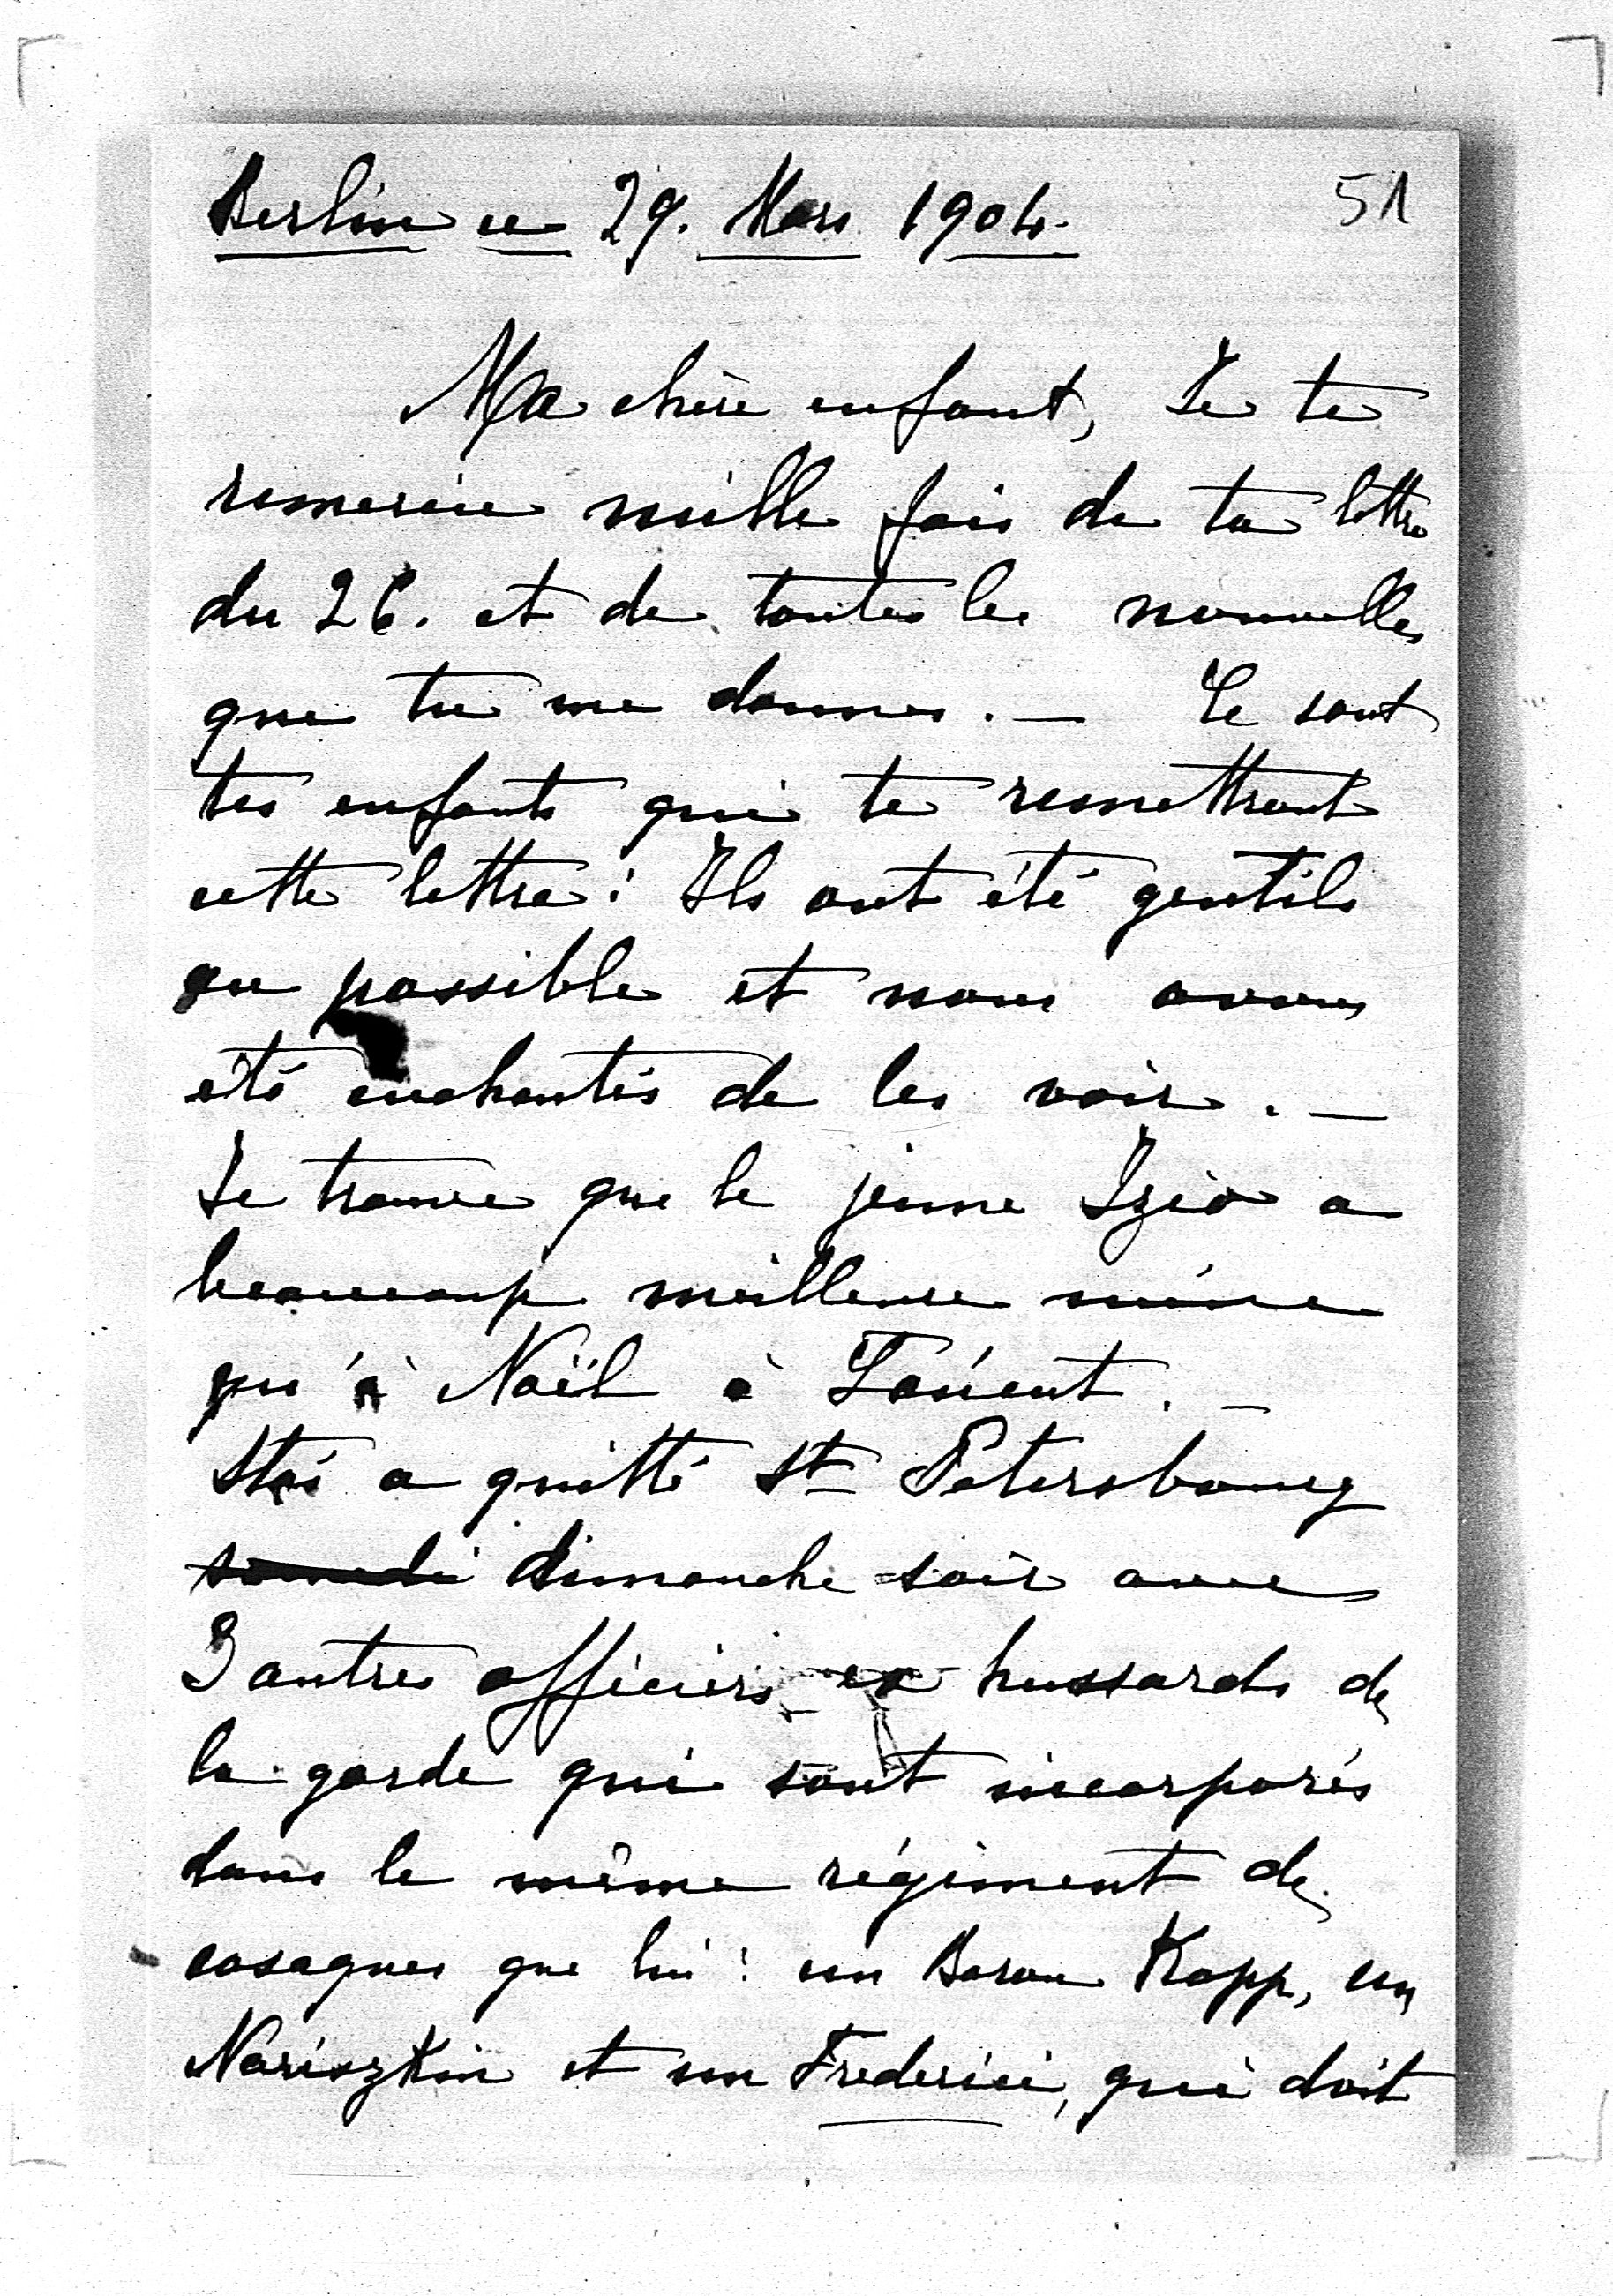 Berlin ce 29. Mars 1904.
51
Ma chère enfant, Je te
remercie mille fois de ta lettre
du 26. et de toutes les nouvelles
que tu me donnes. — Ce sont
tes enfants qui te remettront
cette lettre: Ils ont été gentils
au possible et nous avons
été enchantés de les voir. —
Je trouve que le jeune Izio a
beaucoup meilleure mine
qu'à Noël à Łańcut. —
Staś a quitté St Petersbourg
samedi dimanche soir avec
3 autres officiers ex hussards de
la garde qui sont incorporés
dans le même régiment de
cosaques que lui: un Baron Kapp, un
Nariszkin et un Frederici, qui doit